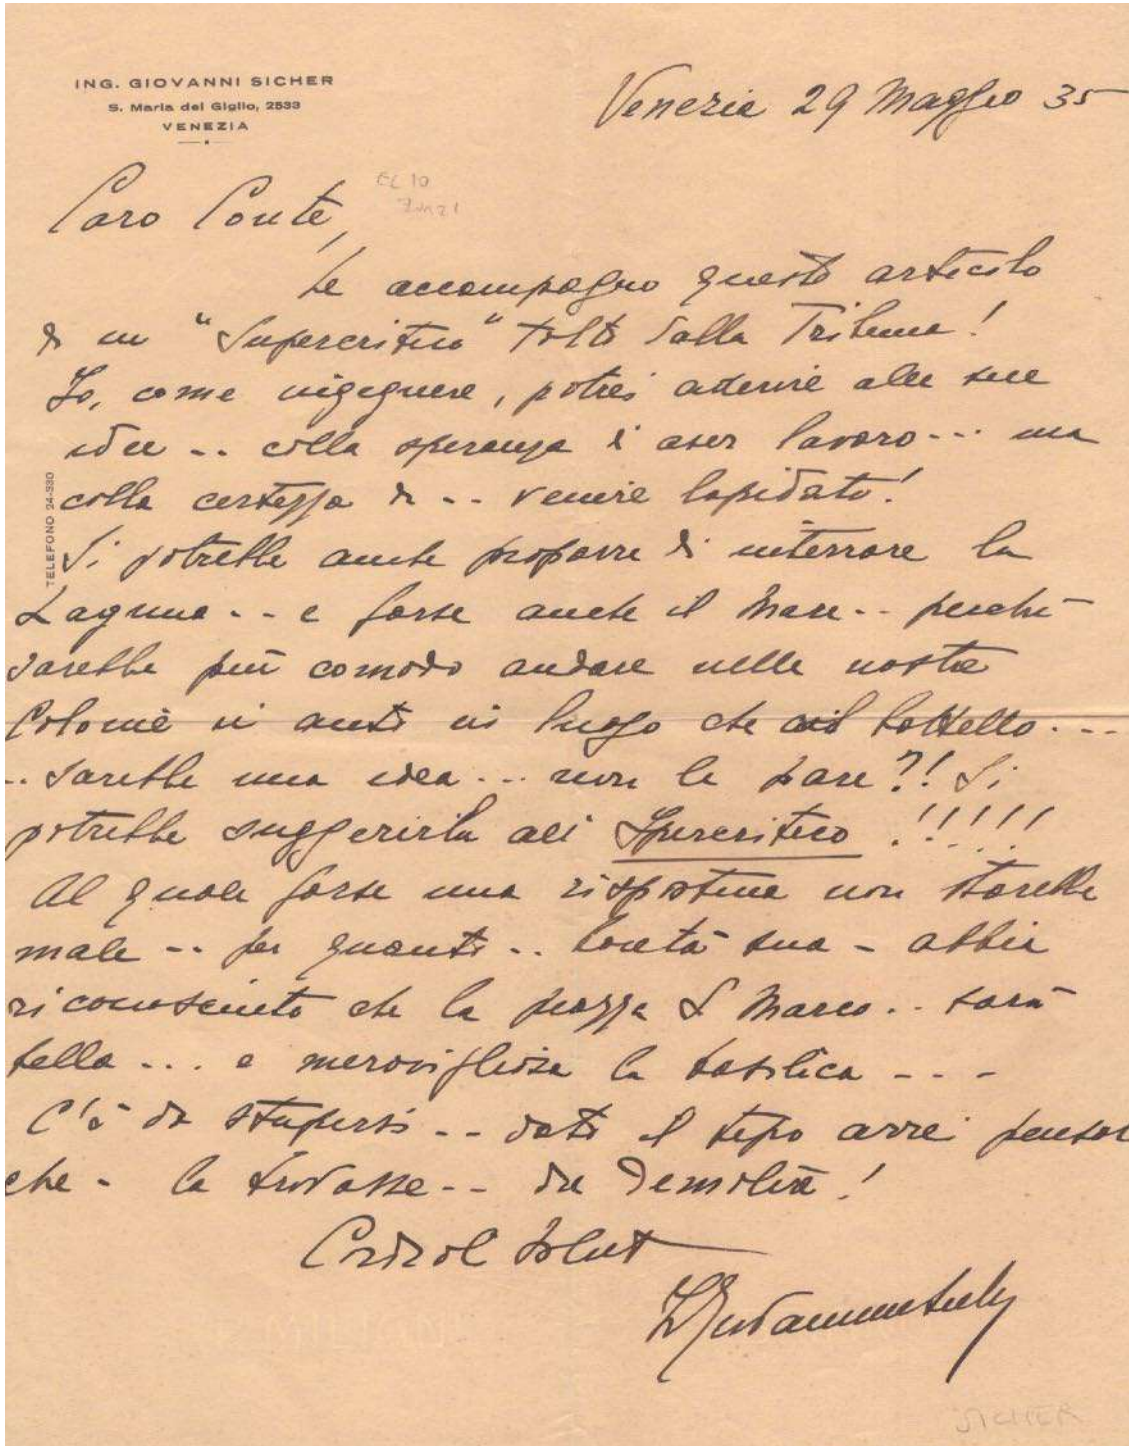 ING. GIOVANNI SICHER
S. Maria del Giglio, 2533
VENEZIA
Venezia 29 Maggio 35
Caro Conte,
Le accompagno questo articolo
di un "Supercritico" tolto dalla Tribuna!
Io, come ingegnere, potrei aderire alle sue
idee .. colla speranza di aver lavoro --- ma
colla certezza di -- venire lapidato!
TELEFONO 24-330
Si potrebbe anche proporre di interrare la
Laguna -- e forse anche il Mare -- perchè
sarebbe più comodo andare nelle nostre
Colonie in auto in luogo che battello ---
.. sarebbe una idea --- non le pare?! Si
potrebbe suggerirla al Supercritico !!!!!
Al quale forse una rispostina non starebbe
male -- per quanto .. bontà sua - abbia
riconosciuto che la piazza S Marco .. sarà
bella ... e meravigliosa la basilica ---
C'è da stupirsi -- dato il tipo avrei pensato
che - la trovasse -- da demolire!
Cordiali saluti
SICHER